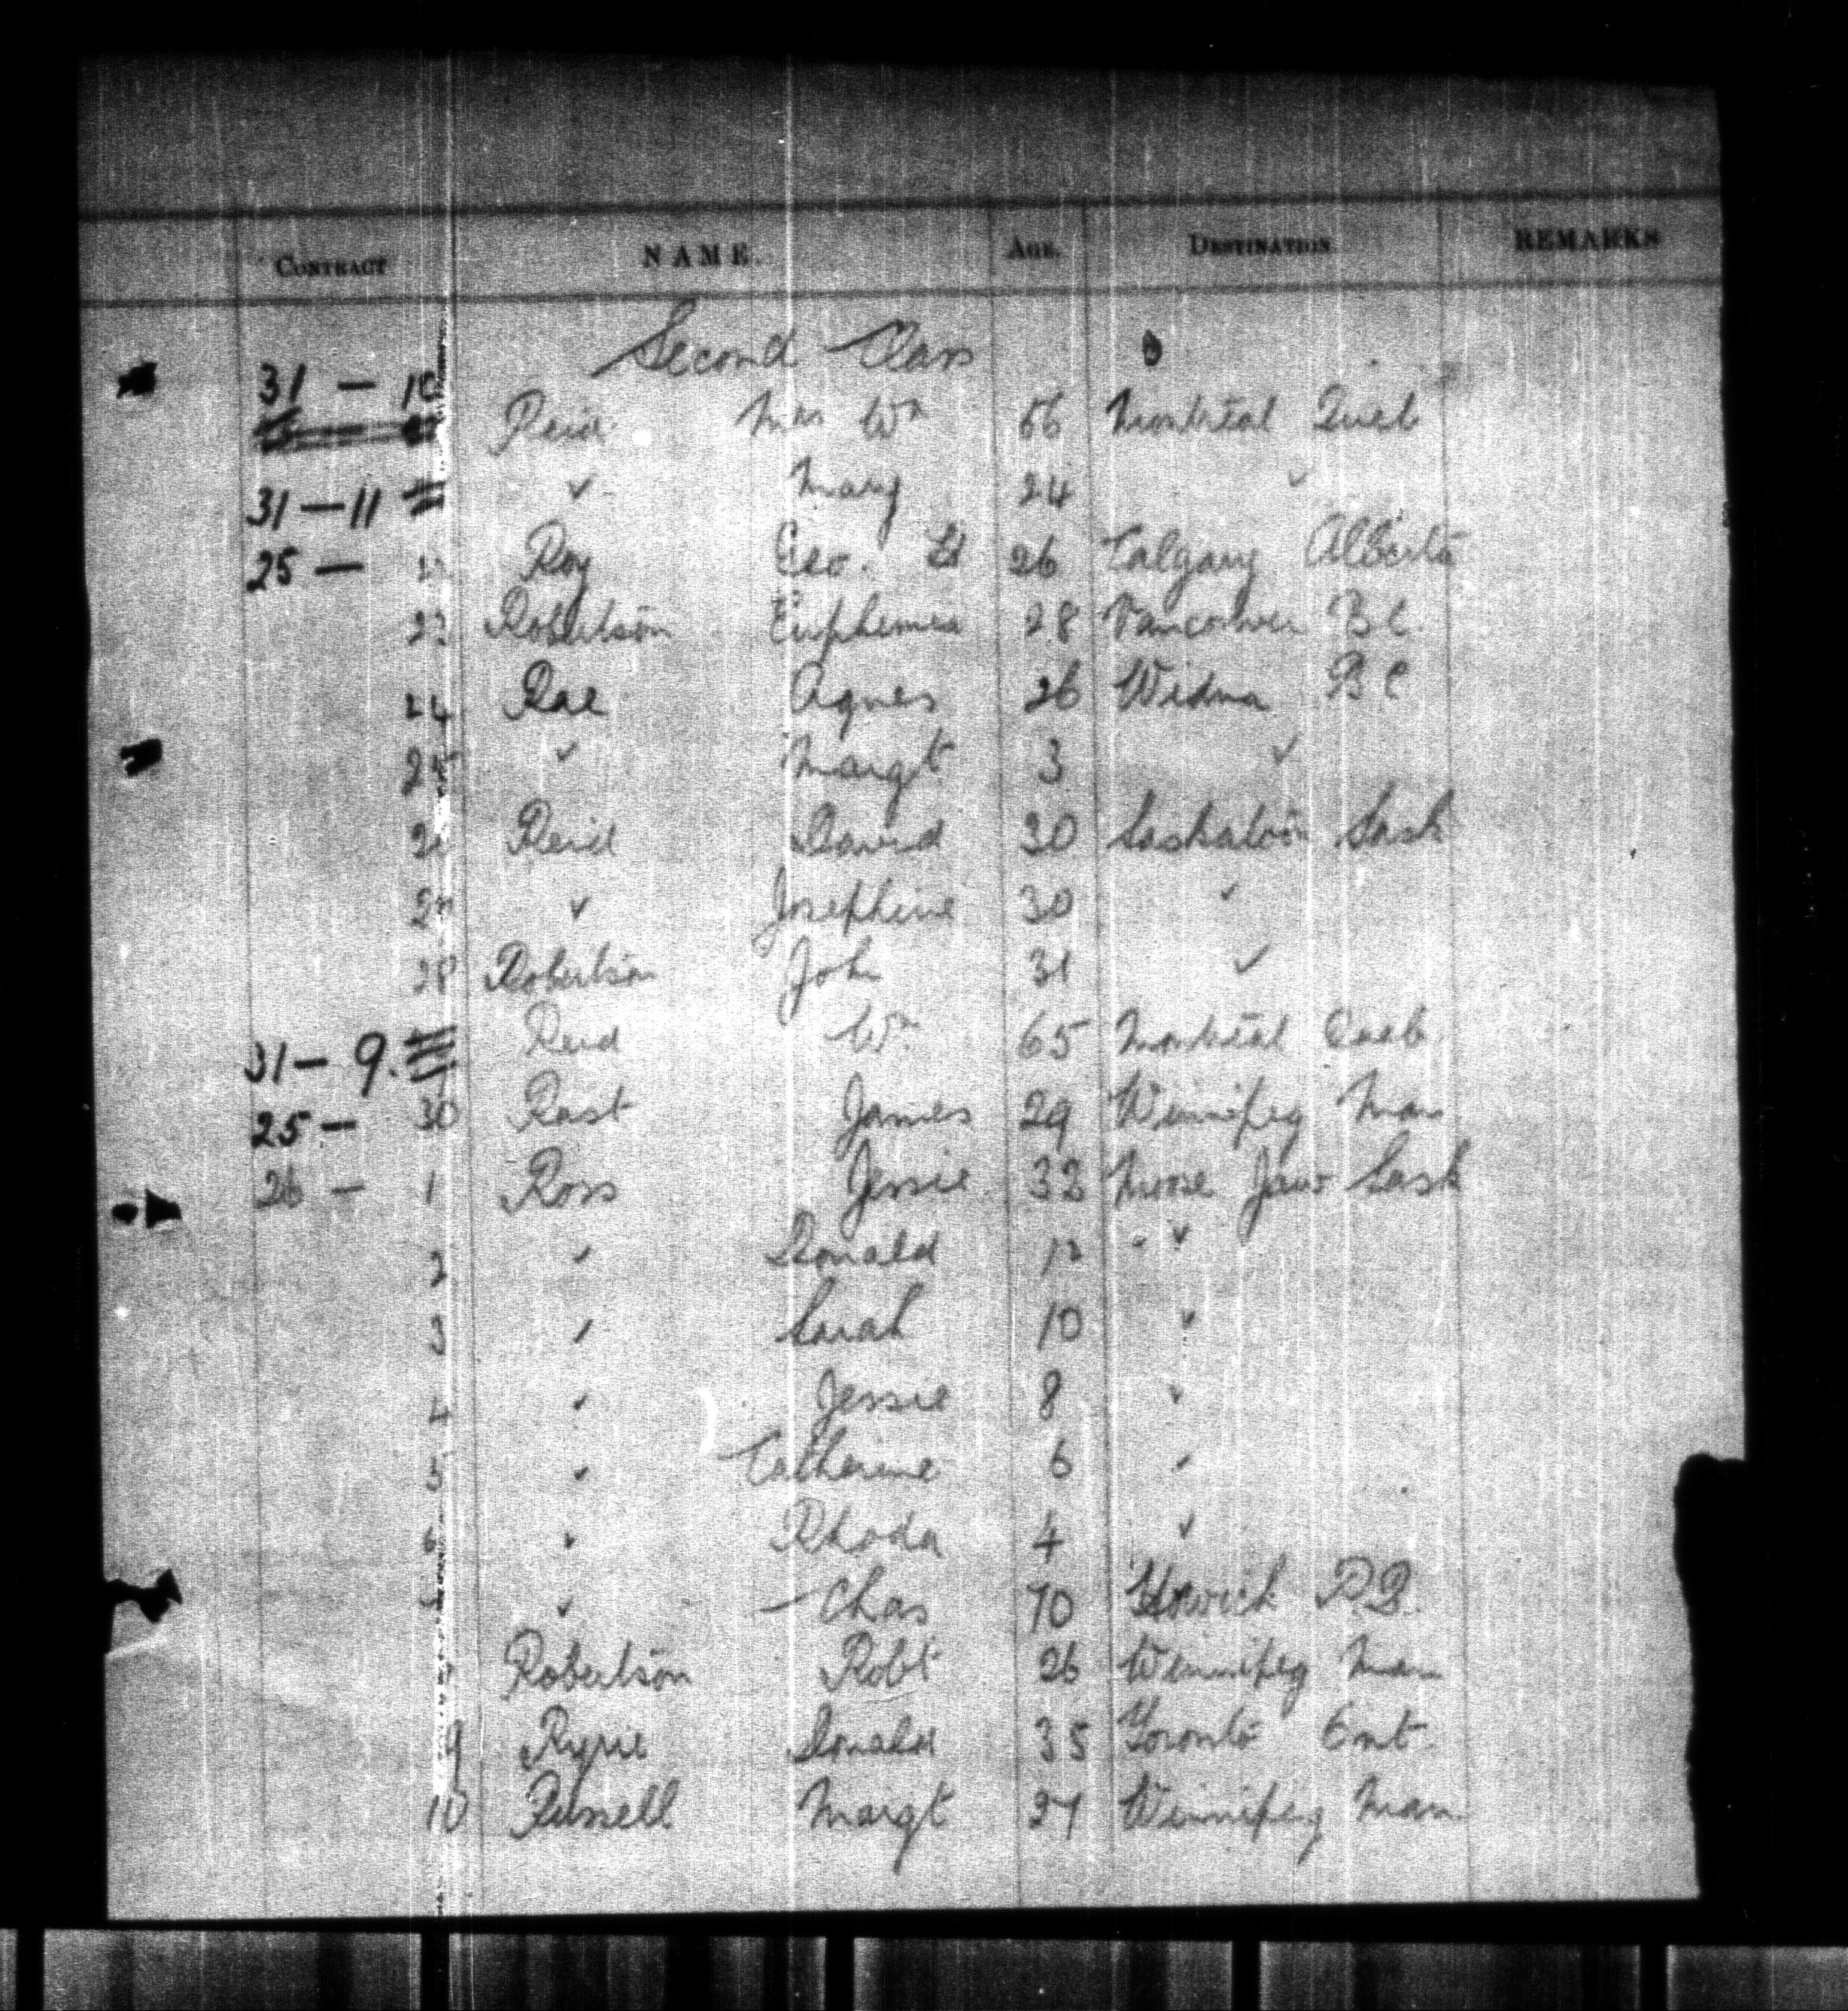 CONTRACT NAME. AGE. DESTINATION REMARKS
Second Class
31 – 10 Reid Mrs Wm 56 Montreal Queb
31 – 11 ✓ Mary 24 ✓
25 – 22 Roy Geo. 26 Calgary Alberta
23 Robertson Euphemia 28 Vancouver B.C.
24 Rae Agnes 26 B C
25 ✓ Margt 3 ✓
26 Reid David 30 Saskatoon Sask
27 ✓ Josephine 30 ✓
28 Robertson John 31 ✓
31 – 9. Reid Wm 65 Montreal Queb.
25 – 30 Rast James 29 Winnipeg Man
26 – 1 Ross Jessie 33 Moose Jaw Sask
2 ✓ Donald 12 ✓
3 ✓ Sarah 10 ✓
4 ✓ Jessie 8 ✓
5 ✓ Catherine 6 ✓
6 ✓ Rhoda 4 ✓
✓ Chas 70 P.Q.
Robertson Robt 26 Winnipeg Man
9 Ryrie Donald 35 Toronto Ont.
10 Russell Margt 27 Winnipeg Man